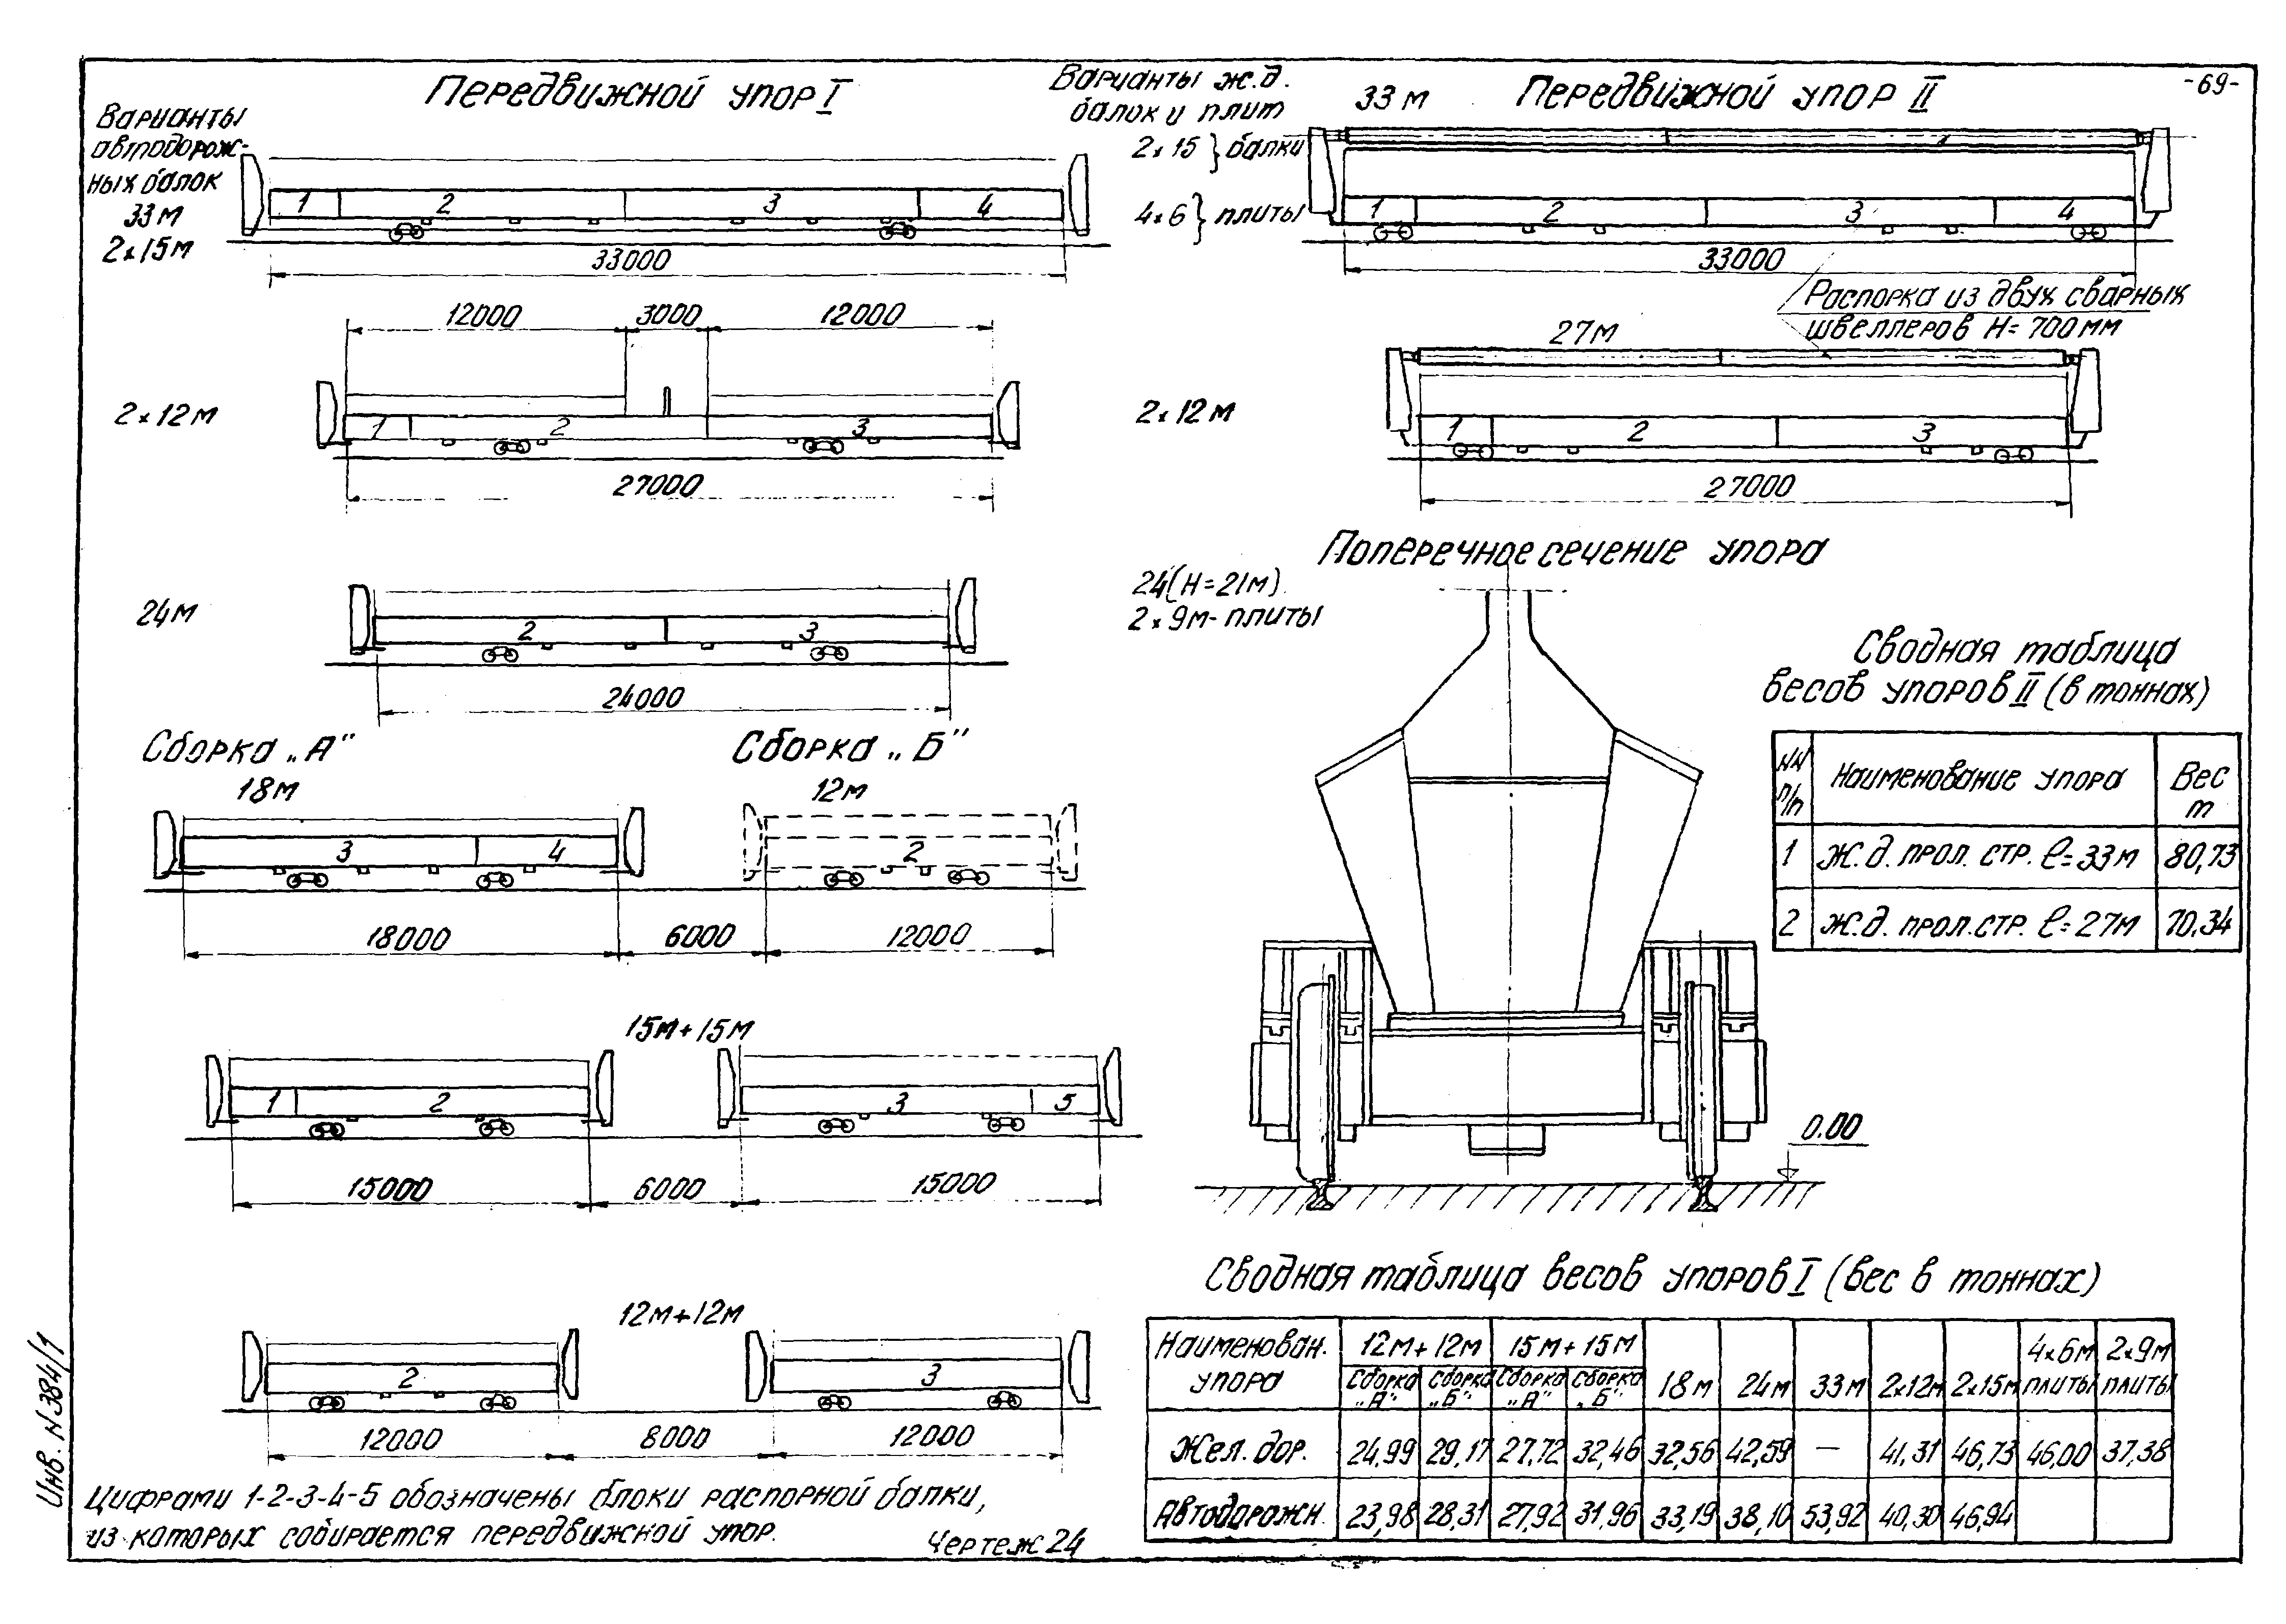 -69-
Передвижной упор I
Варианты
автодорож-
ных балок
33м
2×15м
1 2 3 4
33000
12000 3000 12000
2×12м
1 2 3
27000
24м
2 3
24000
Сборка „А" Сборка „Б"
18м 12м
3 4 2
18000 6000 12000
15м+15м
1 2 3 5
15000 6000 15000
12м+12м
2 3
12000 8000 12000
Цифрами 1-2-3-4-5 обозначены блоки распорной балки,
из которых собирается передвижной упор.
Чертеж 24
Инв. N 384/1
Варианты ж.д.
балок и плит
2×15 } балки
4×6 } плиты
33м Передвижной упор II
1 2 3 4
33000
Распорка из двух сварных
швеллеров Н=700мм
27м
2×12м
1 2 3
27000
24(Н=21м)
2×9м-плиты
Поперечное сечение упора
0.00
Сводная таблица
весов упоров II (в тоннах)
NN п/п Наименование упора Вес т
1 Ж.д. прол. стр. ℓ=33м 80,73
2 Ж.д. прол. стр. ℓ=27м 70,34
Сводная таблица весов упоров I (вес в тоннах)
Наименован. упора 12м+12м 15м+15м 18м 24м 33м 2×12м 2×15м 4×6м плиты 2×9м плиты
Сборка „А" Сборка „Б" Сборка „А" Сборка „Б"
Жел. дор. 24,99 29,17 27,72 32,46 32,56 42,59 — 41,31 46,73 46,00 37,38
Автодорожн. 23,98 28,31 27,92 31,96 33,19 38,10 53,92 40,30 46,94